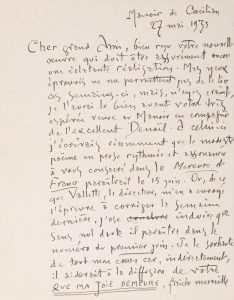 Manoir de Cœcilian
27 mai 1935
Cher grand Ami, bien reçu votre nouvelle
œuvre qui doit être assurément encore
une éclatante réalisation. Mes yeux
éprouvés ne me permettent pas de le lire
ces semaines-ci, mais, n'ayez crainte,
je l'aurai lu bien avant votre très
espérée venue au Manoir en compagnie
de l'excellent Denoël. A celui-ci
j'écrivais récemment que le modeste
poème en prose rythmée et assonancé
à vous consacré dans le Mercure de
France paraîtrait le 15 juin. Or, de ce
que Vallette, le directeur, m'en a envoyé
l'épreuve à corriger la semaine
dernière, j'ose conclure induire que
sans nul doute il paraîtra dans le
numéro du premier juin. Je le souhaite
de tout mon cœur car, indirectement,
il aiderait à la diffusion de votre
QUE MA JOIE DEMEURE, fraîche merveille